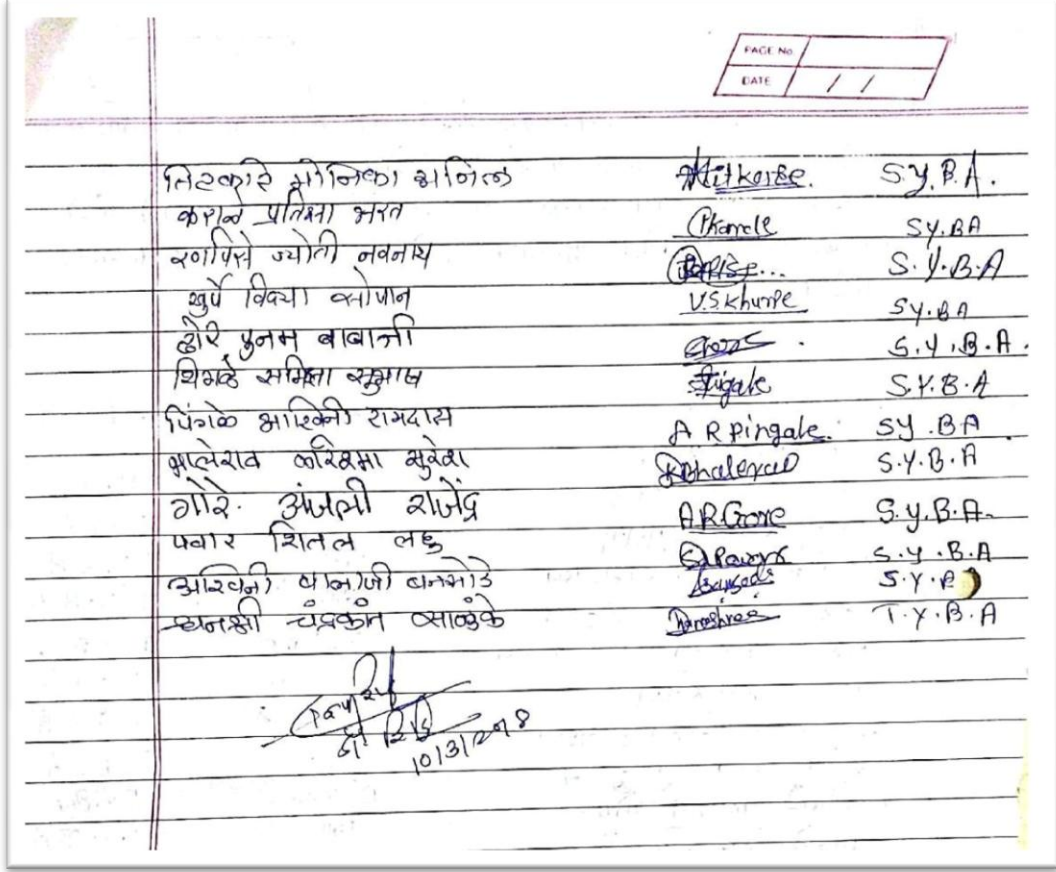 PAGE No.
DATE / /
तिटकारे मोनिका अनिल Mitkarbe. S.Y.B.A.
कराळे प्रतिक्षा भरत PKarale SY.BA
रणपिसे ज्योती नवनाथ S.Y.B.A
खुर्पे विद्या सोपान V.S.Khurpe SY.BA
ढोरे पुनम बाबाजी S.Y.B.A.
शिगळे समिक्षा सुभाष S.Y.B.A
पिंगळे अश्विनी रामदास A R Pingale. SY.BA
भालेराव करिश्मा सुरेश KBhalerao S.Y.B.A
गोरे. अंजली राजेंद्र A R Gore S.Y.B.A.
पवार शितल लहु S.Y.B.A
अश्विनी बालाजी बनसोडे S.Y.B
धनश्री चंद्रकांत साळुंके Dhanashree T.Y.B.A
10/3/2018